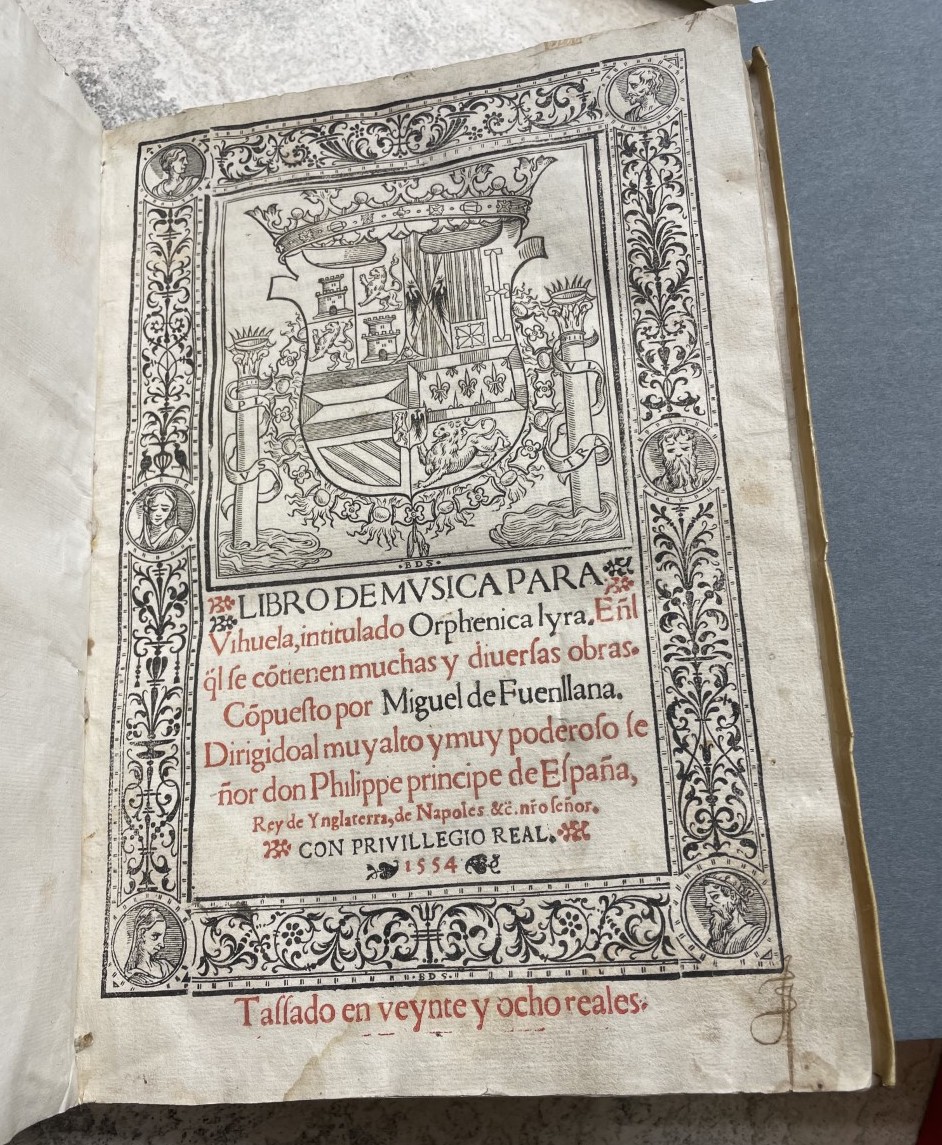 ·BDS·
LIBRO DE MVSICA PARA
Vihuela, intitulado Orphenica lyra. Eñl
q̃l se cōtienen muchas y diuersas obras.
Cōpuesto por Miguel de Fuenllana.
Dirigido al muy alto y muy poderoso se
ñor don Philippe principe de España,
Rey de Ynglaterra, de Napoles &c̃. nr̃o señor.
CON PRIVILLEGIO REAL.
1554
·BDS·
Tassado en veynte y ocho reales.